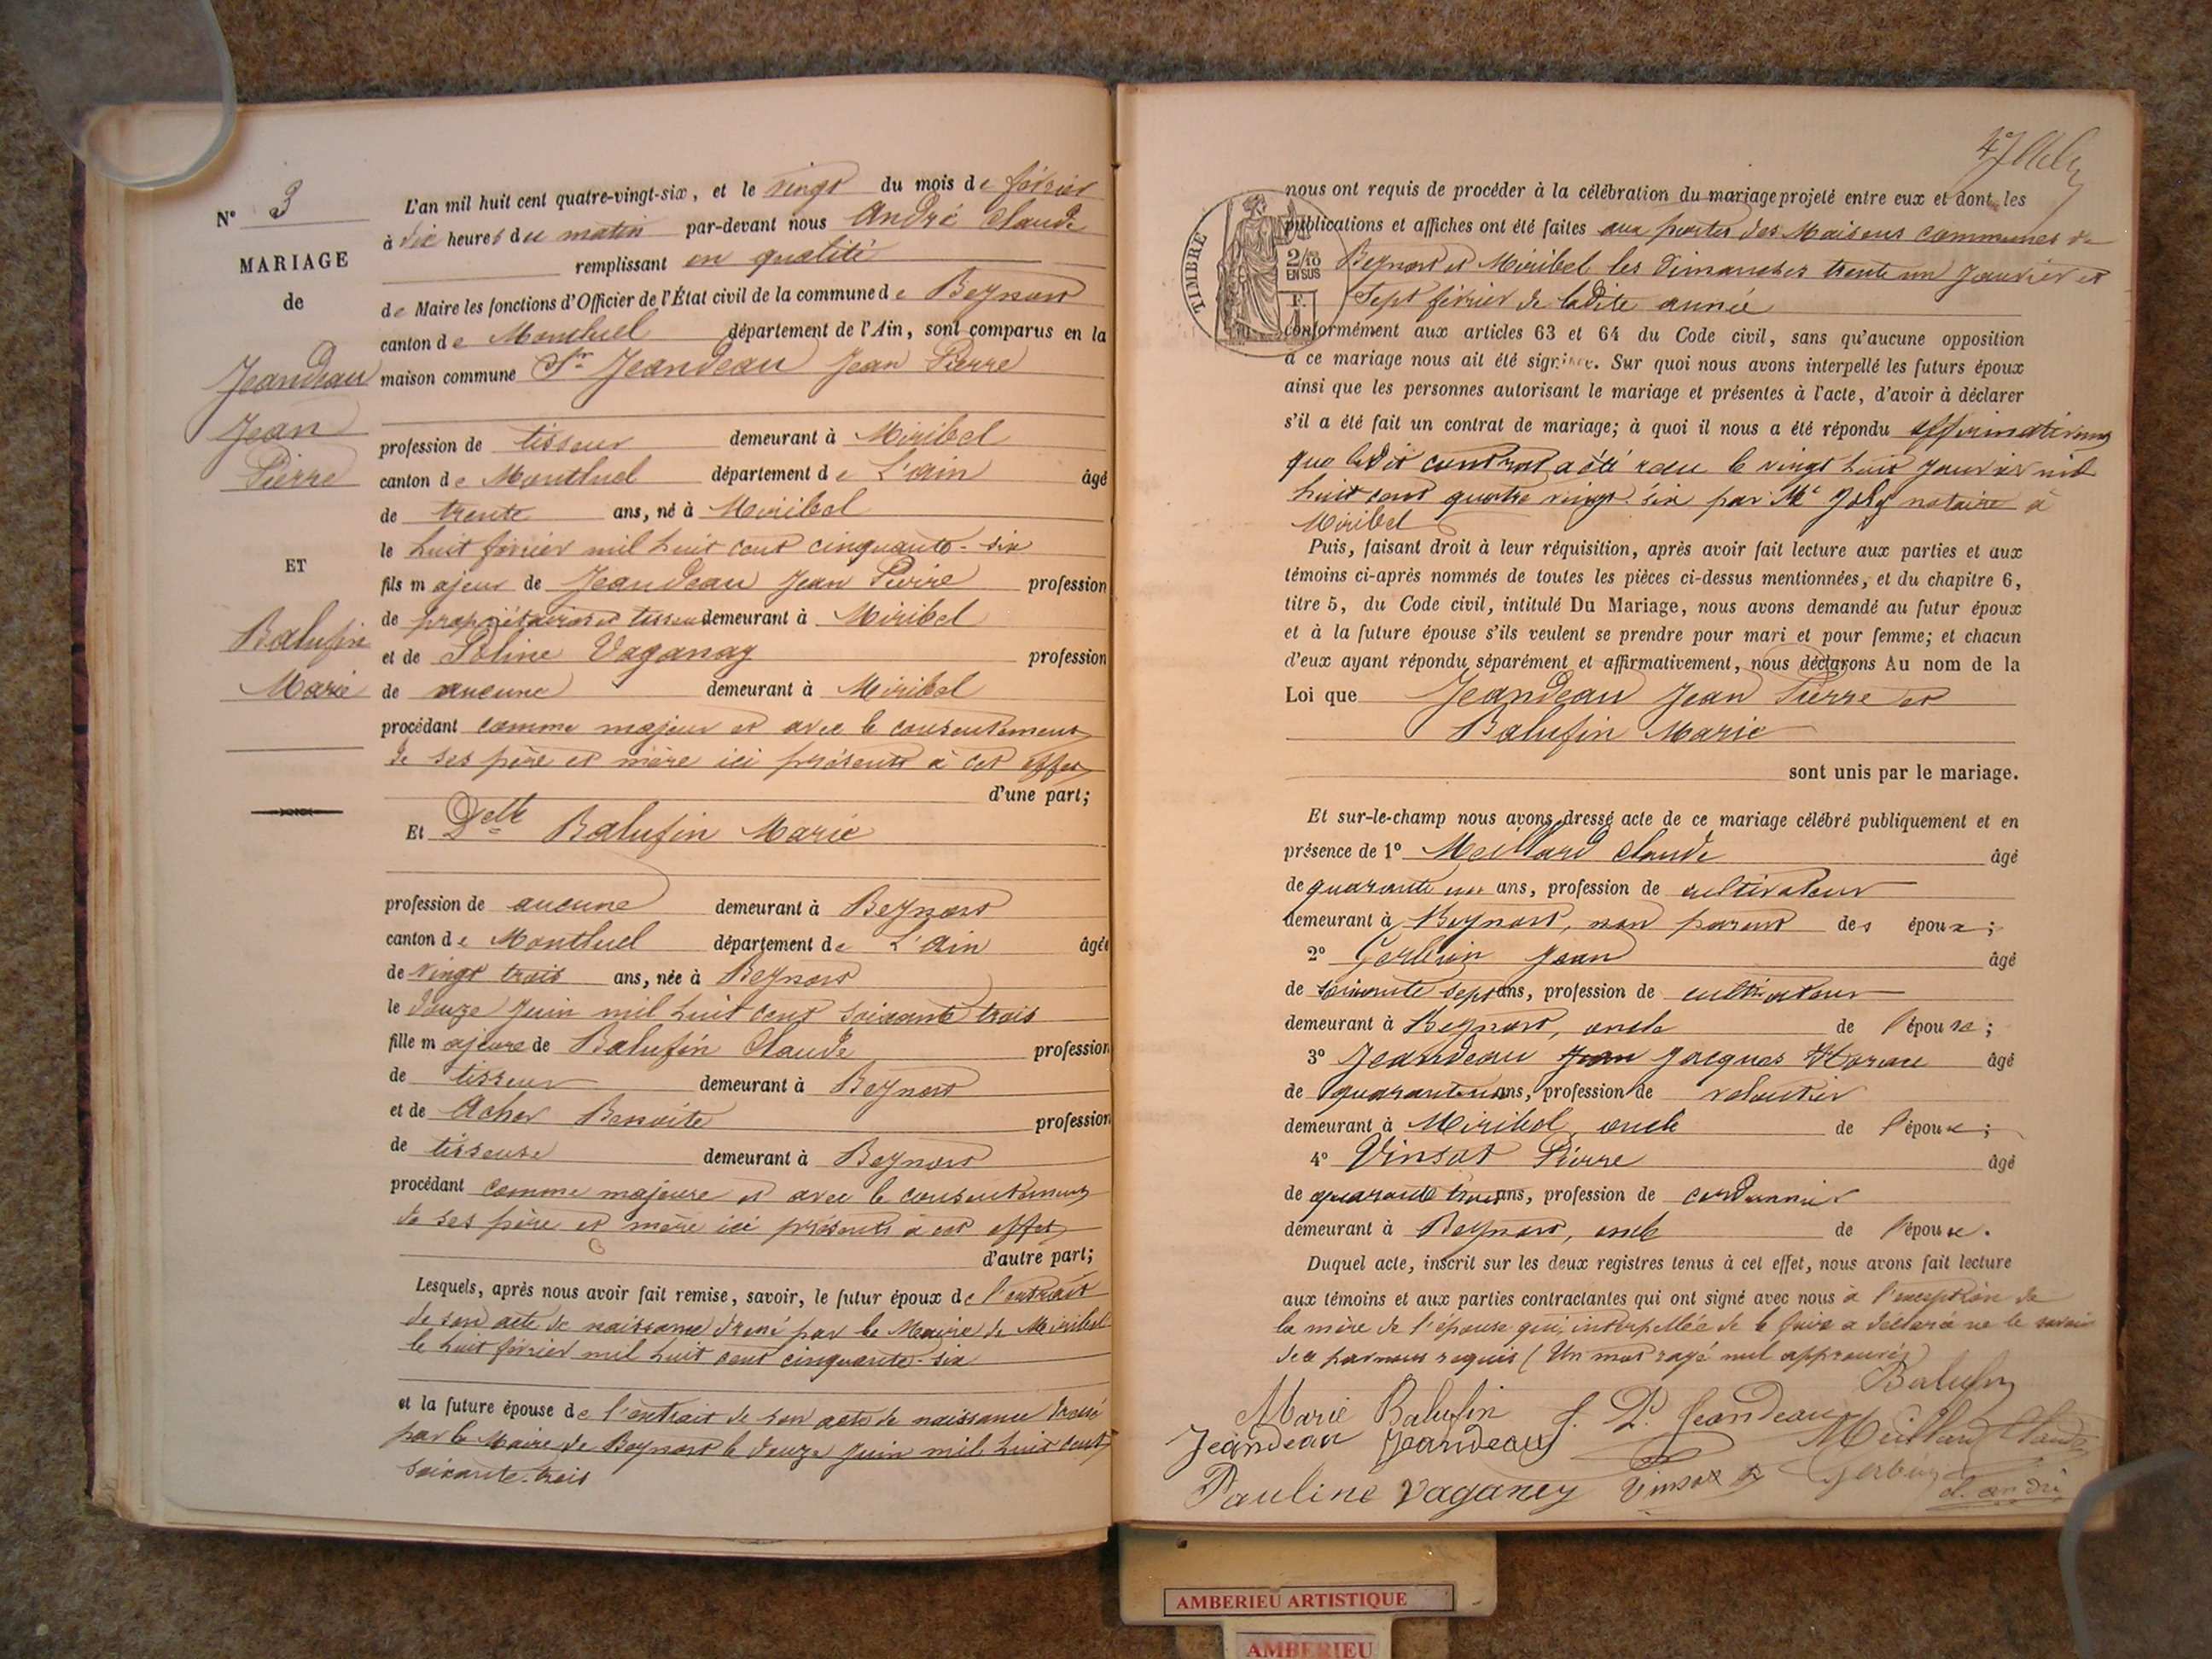 N° 3
MARIAGE
de
Jeandeau
Jean
Pierre
ET
Balufin
Marie
L'an mil huit cent quatre-vingt-six, et le vingt du mois de février
à dix heures du matin par-devant nous André Claude
remplissant en qualité
de Maire les fonctions d'Officier de l'État civil de la commune de Beynost
canton de Montluel département de l'Ain, sont comparus en la
maison commune Sr Jeandeau Jean Pierre
profession de tisseur demeurant à Miribel
canton de Montluel département de L'ain âgé
de trente ans, né à Miribel
le huit février mil huit cent cinquante-six
fils majeur de Jeandeau Jean Pierre profession
de propriétaire et tisseur demeurant à Miribel
et de Poline Vaganay profession
de aucune demeurant à Miribel
procédant comme majeur et avec le consentement
de ses père et mère ici présents à cet effet
d'une part;
Et Delle Balufin Marie
profession de aucune demeurant à Beynost
canton de Montluel département de L'ain âgée
de vingt trois ans, née à Beynost
le douze juin mil huit cent soixante trois
fille majeure de Balufin Claude profession
de tisseur demeurant à Beynost
et de Acher Benoite profession
de tisseuse demeurant à Beynost
procédant comme majeure et avec le consentement
de ses père et mère ici présents à cet effet
d'autre part;
Lesquels, après nous avoir fait remise, savoir, le futur époux de l'extrait
de son acte de naissance dressé par le Maire de Miribel
le huit février mil huit cent cinquante-six
et la future épouse de l'extrait de son acte de naissance dressé
par le Maire de Beynost le douze juin mil huit cent
soixante-trois
47
TIMBRE
2/10
EN SUS
nous ont requis de procéder à la célébration du mariage projeté entre eux et dont les
publications et affiches ont été faites aux portes des Maisons communes de
Beynost et Miribel les Dimanches trente un Janvier et
sept février de ladite année
conformément aux articles 63 et 64 du Code civil, sans qu'aucune opposition
à ce mariage nous ait été signifiée. Sur quoi nous avons interpellé les futurs époux
ainsi que les personnes autorisant le mariage et présentes à l'acte, d'avoir à déclarer
s'il a été fait un contrat de mariage; à quoi il nous a été répondu affirmativement
que ledit contrat a été reçu le vingt huit janvier mil
huit cent quatre vingt-six par Me Joly notaire à
Miribel
Puis, faisant droit à leur réquisition, après avoir fait lecture aux parties et aux
témoins ci-après nommés de toutes les pièces ci-dessus mentionnées, et du chapitre 6,
titre 5, du Code civil, intitulé Du Mariage, nous avons demandé au futur époux
et à la future épouse s'ils veulent se prendre pour mari et pour femme; et chacun
d'eux ayant répondu séparément et affirmativement, nous déclarons Au nom de la
Loi que Jeandeau Jean Pierre et
Balufin Marie
sont unis par le mariage.
Et sur-le-champ nous avons dressé acte de ce mariage célébré publiquement et en
présence de 1° Meillard Claude âgé
de quarante un ans, profession de cultivateur
demeurant à Beynost, non parent des époux;
2° Gerbuin Jean âgé
de soixante sept ans, profession de cultivateur
demeurant à Beynost, oncle de l'épouse;
3° Jeandeau Jean Jacques âgé
de ans, profession de
demeurant à Miribel, oncle de l'époux;
4° Vinsot Pierre âgé
de quarante trois ans, profession de cordonnier
demeurant à Beynost, oncle de l'épouse.
Duquel acte, inscrit sur les deux registres tenus à cet effet, nous avons fait lecture
aux témoins et aux parties contractantes qui ont signé avec nous à l'exception de
la mère de l'épouse qui, interpellée de le faire a déclaré ne le savoir
de ce par nous requis (Un mot rayé nul approuvé)
Balufin
Marie Balufin J. P. Jeandeau
Jeandeau Jeandeau Meillard Claude
Pauline Vaganey Vinsot
C. André
AMBERIEU ARTISTIQUE
AMBERIEU